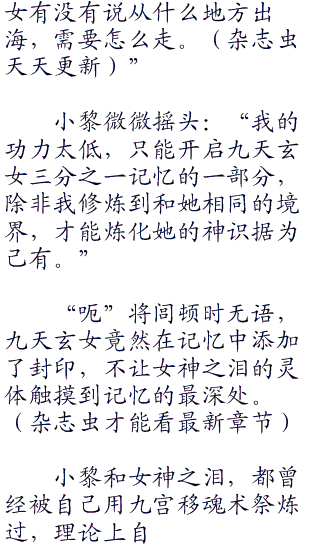 女有没有说从什么地方出
海，需要怎么走。（杂志虫
天天更新）”
小黎微微摇头：“我的
功力太低，只能开启九天玄
女三分之一记忆的一部分，
除非我修炼到和她相同的境
界，才能炼化她的神识据为
己有。”
“呃”将闾顿时无语，
九天玄女竟然在记忆中添加
了封印，不让女神之泪的灵
体触摸到记忆的最深处。
（杂志虫才能看最新章节）
小黎和女神之泪，都曾
经被自己用九宫移魂术祭炼
过，理论上自